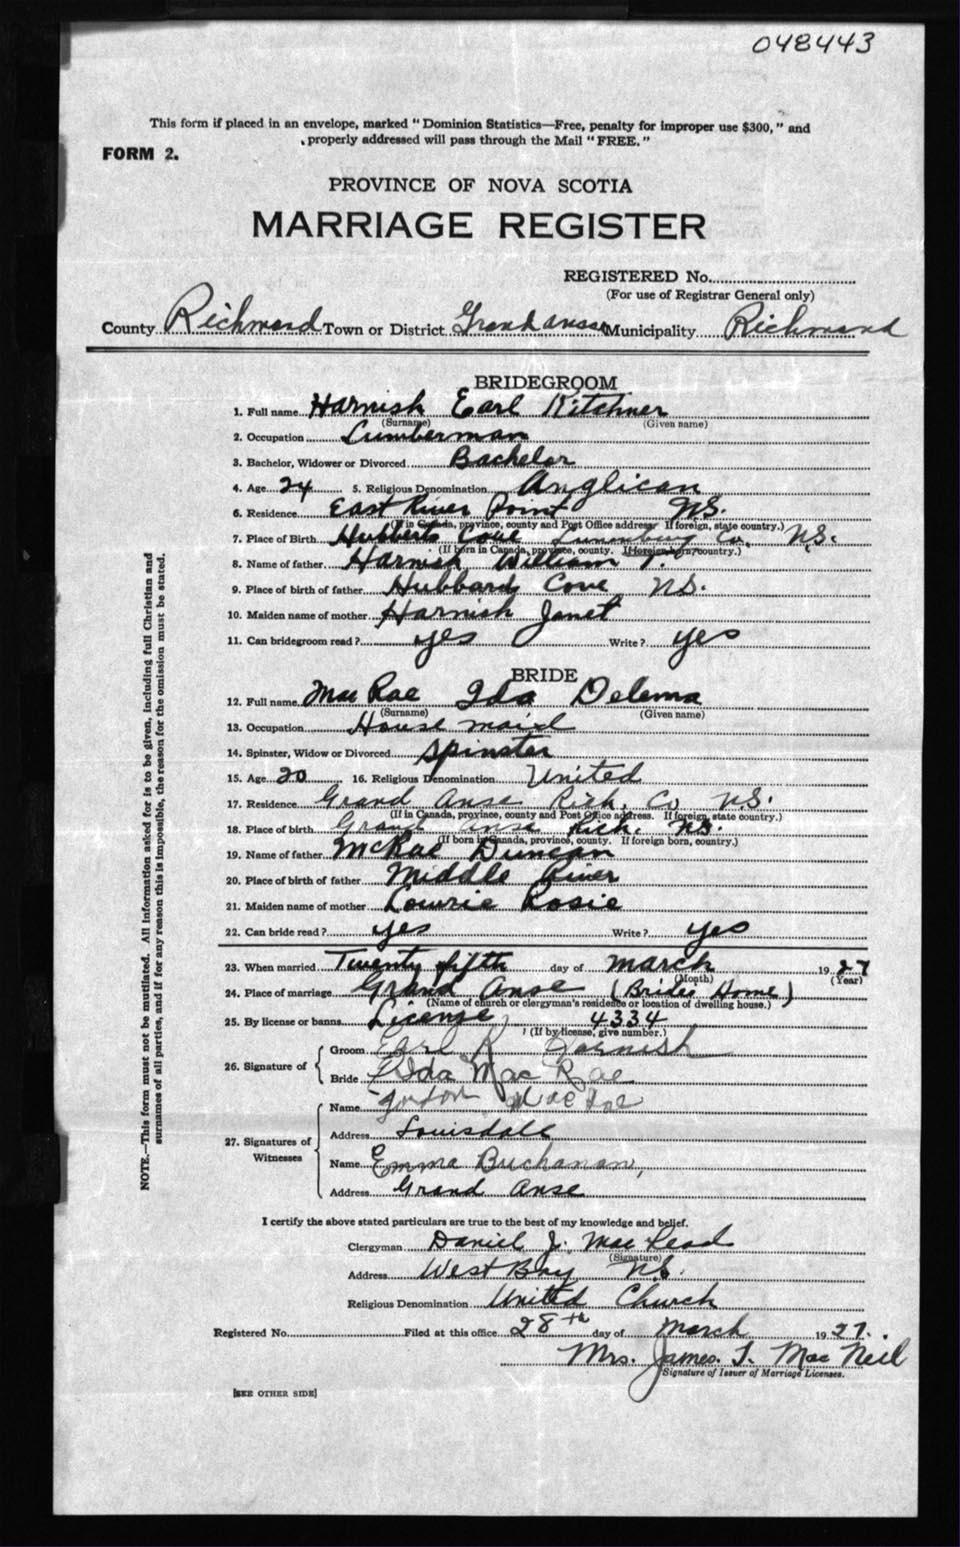 048443
This form if placed in an envelope, marked "Dominion Statistics—Free, penalty for improper use $300," and
properly addressed will pass through the Mail "FREE."
FORM 2.
PROVINCE OF NOVA SCOTIA
MARRIAGE REGISTER
REGISTERED No.
(For use of Registrar General only)
County Richmond Town or District Grand Anse Municipality Richmond
BRIDEGROOM
1. Full name Harnish Earl Kitchner
(Surname) (Given name)
2. Occupation Lumberman
3. Bachelor, Widower or Divorced Bachelor
4. Age 24 5. Religious Denomination Anglican
6. Residence East River Point N.S.
(If in Canada, province, county and Post Office address. If foreign, state country.)
7. Place of Birth Hubberts Cove Lunenburg Co. N.S.
(If born in Canada, province, county. If foreign born, country.)
8. Name of father Harnish William T.
9. Place of birth of father Hubbards Cove N.S.
10. Maiden name of mother Harnish Janet
11. Can bridegroom read? yes Write? yes
BRIDE
12. Full name Mac Rae Ida Delema
(Surname) (Given name)
13. Occupation House maid
14. Spinster, Widow or Divorced Spinster
15. Age 20 16. Religious Denomination United
17. Residence Grand Anse Rich. Co N.S.
(If in Canada, province, county and Post Office address. If foreign, state country.)
18. Place of birth Grand Anse Rich. N.S.
(If born in Canada, province, county. If foreign born, country.)
19. Name of father McRae Duncan
20. Place of birth of father Middle River
21. Maiden name of mother Lowrie Rosie
22. Can bride read? yes Write? yes
23. When married Twenty fifth day of March 1927
(Month) (Year)
24. Place of marriage Grand Anse (Brides Home)
(Name of church or clergyman's residence or location of dwelling house.)
25. By license or banns License 4334
(If by license, give number.)
26. Signature of
Groom Earl K Harnish
Bride Ida Mac Rae
27. Signatures of Witnesses
Name Gordon MacRae
Address Louisdale
Name Emma Buchanan,
Address Grand Anse
I certify the above stated particulars are true to the best of my knowledge and belief.
Clergyman Daniel J. MacLeod
(Signature)
Address West Bay N.S.
Religious Denomination United Church
Registered No. Filed at this office 28th day of March 1927.
Mrs. James. T. Mac Neil
Signature of Issuer of Marriage Licenses.
[SEE OTHER SIDE]
NOTE.—This form must not be mutilated. All information asked for is to be given, including full Christian and
surnames of all parties, and if for any reason this is impossible, the reason for the omission must be stated.